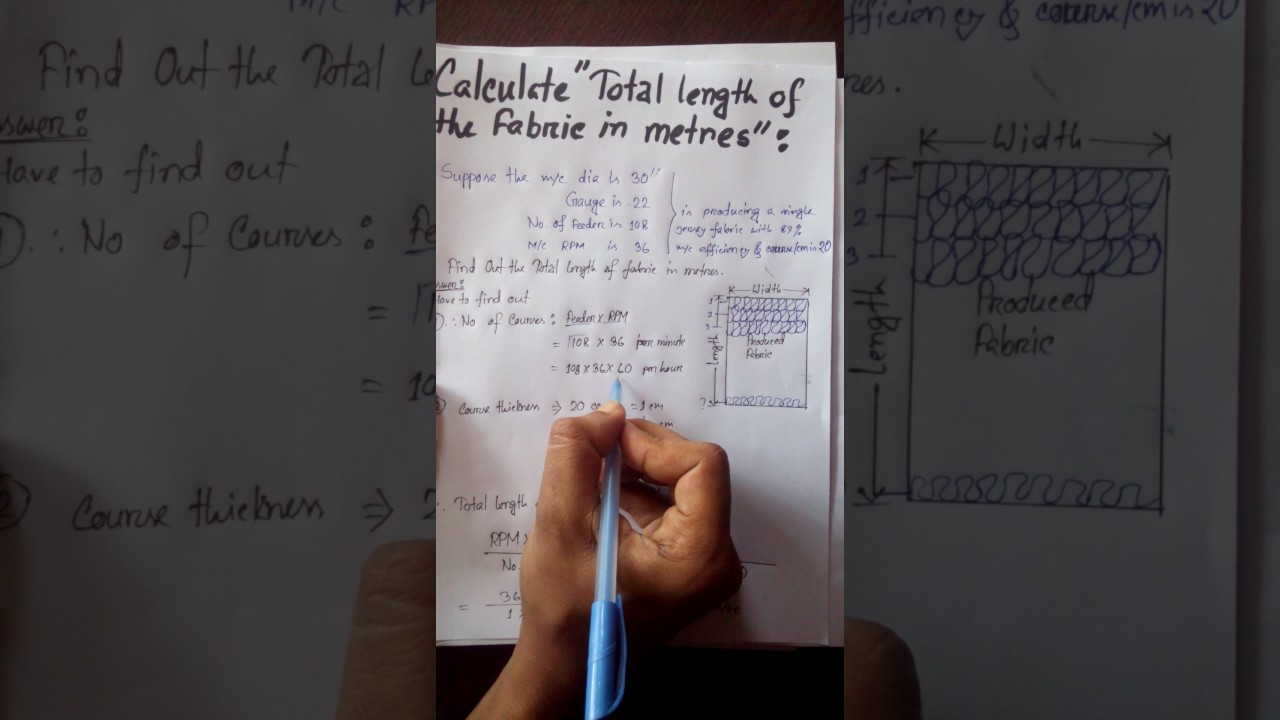 Calculate "Total length of
the Fabric in metres":
Suppose the m/c dia is 30"
Gauge is 22
No. of Feeder is 108
M/C RPM is 36
is producing a single
jersey fabric with 87%
m/c efficiency & course/cm is 20
Find Out the Total Length of fabric in metres.
swer:
Have to find out
∴ No of Courses : Feeder x RPM
= 108 x 36 per minute
= 108 x 36 x 60 per hour
Course thickness ⇒ 20 = 1 cm
cm
∴ Total length
RPM
No.
=
36
1
Width
1
2
3
Length
Produced
Fabric
M/C RP
Find Out the Total le
nswer:
Have to find out
1). ∴ No of Courses : Fe
=
= 10
2) Course thickness ⇒ 2
fficiency & course/cm is 20
res.
Width
1
2
3
Length
Produced
Fabric